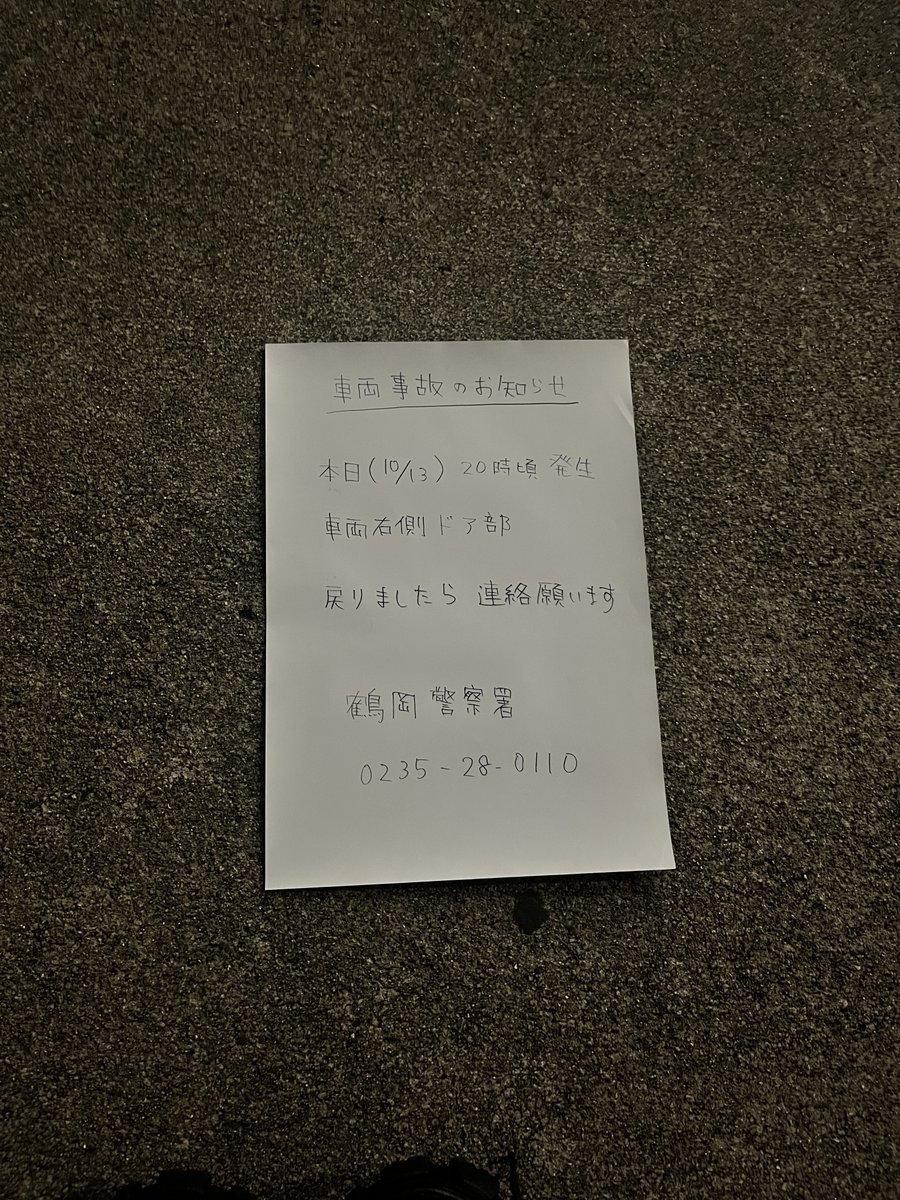 車両事故のお知らせ
本日(10/13) 20時頃 発生
車両右側ドア部
戻りましたら 連絡願います
鶴岡警察署
0235-28-0110